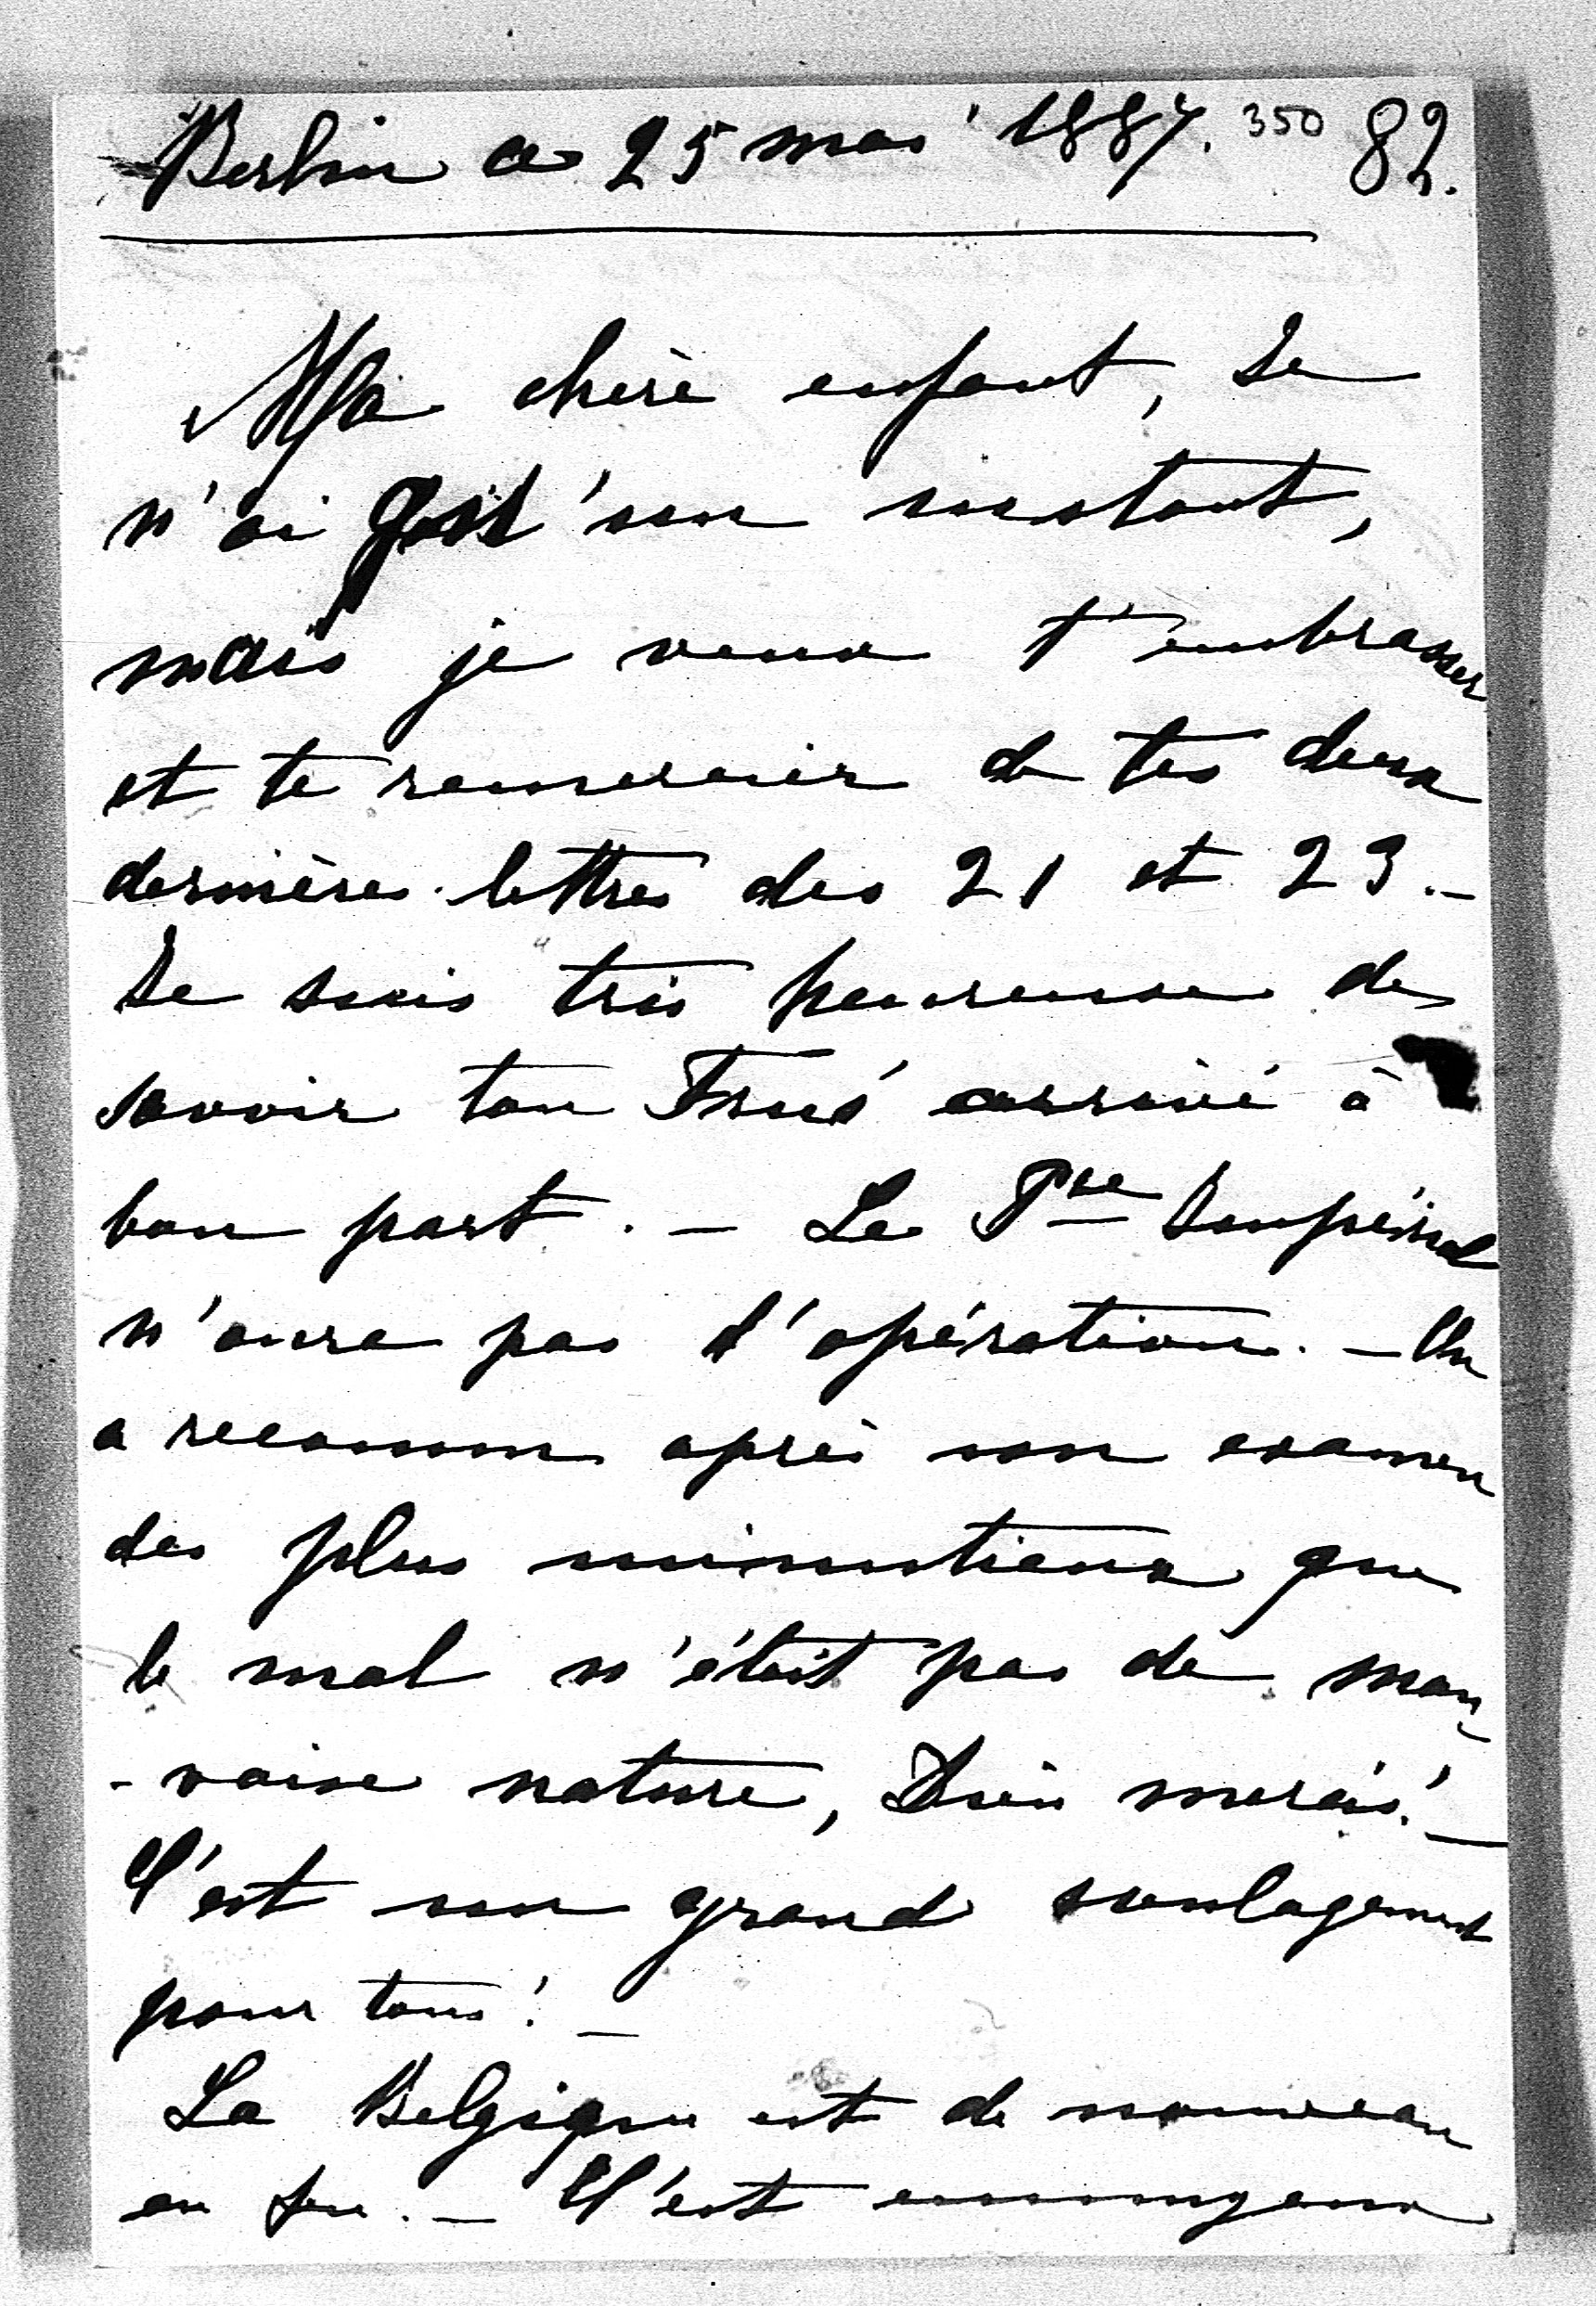 Berlin ce 25 mai 1887. 350 82.
Ma chère enfant, Je
n'ai qu'un instant,
mais je veux t'embrasser
et te remercier de tes deux
dernières lettres des 21 et 23. –
Je suis très heureuse de
savoir ton arrivé à
bon port. – Le Pce Impérial
n'aura pas d'opération. – On
a reconnu après un examen
des plus minutieux que
le mal n'était pas de mau-
-vaise nature, Dieu merci! –
C'est un grand soulagement
pour tous! –
La Belgique est de nouveau
en feu. – C'est ennuyeux